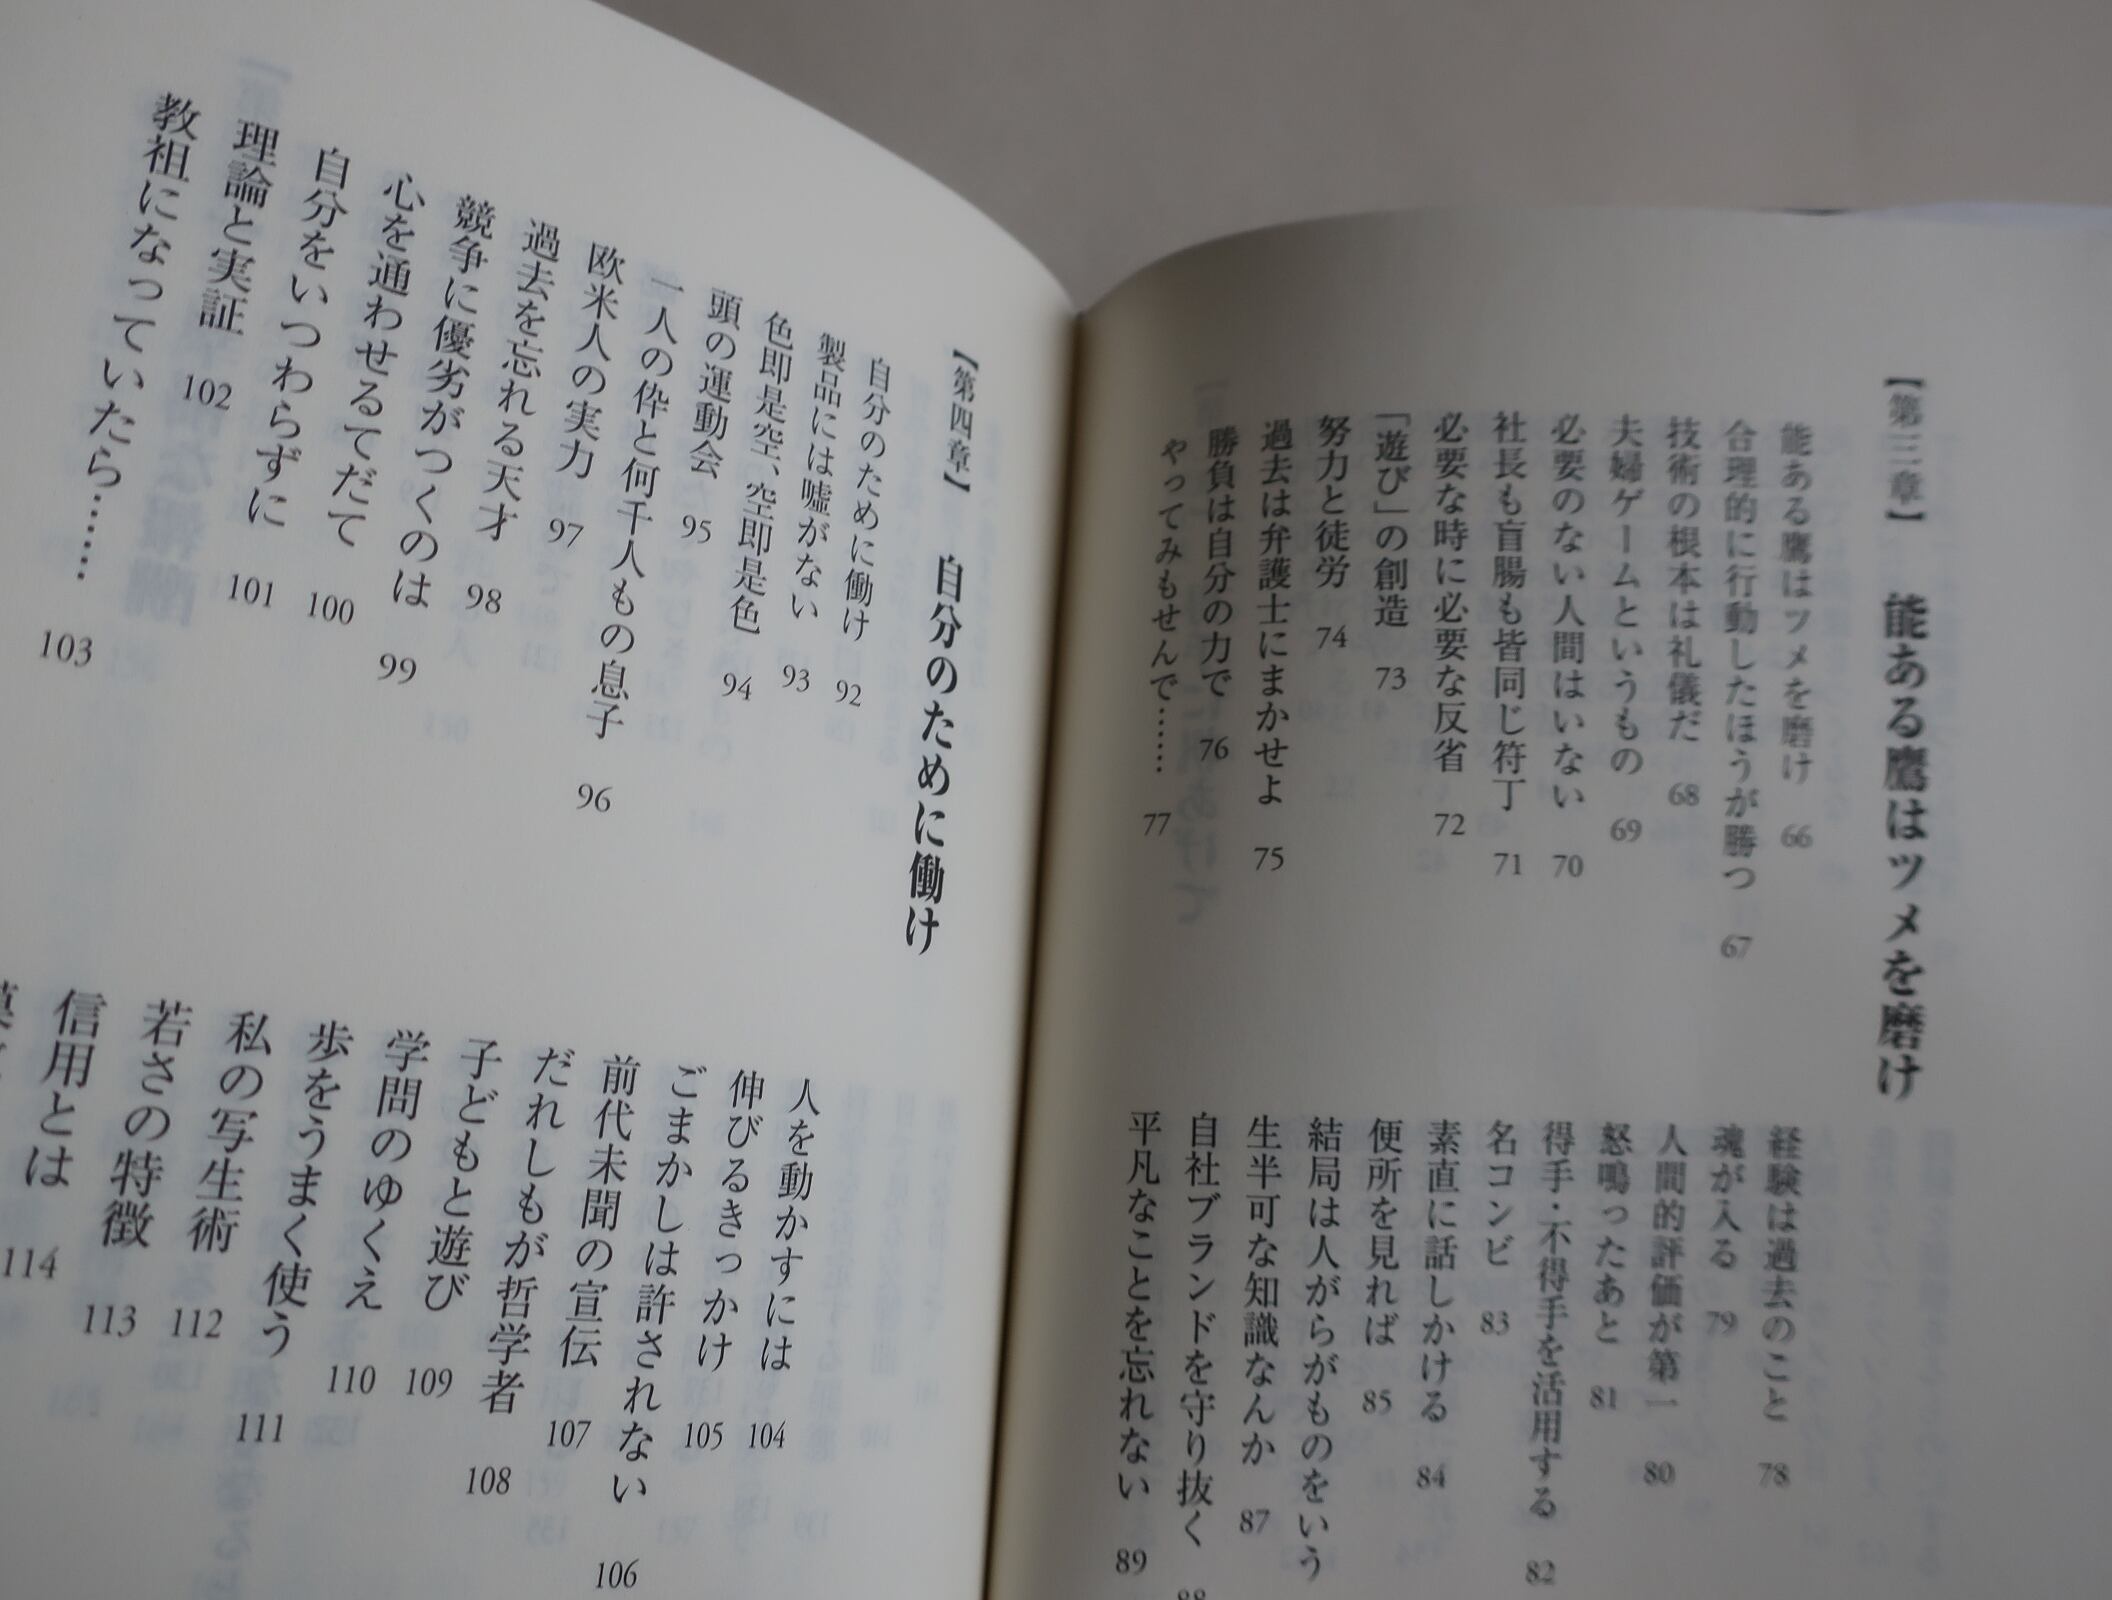 【第三章】 能ある鷹はツメを磨け
能ある鷹はツメを磨け 66
合理的に行動したほうが勝つ 67
技術の根本は礼儀だ 68
夫婦ゲームというもの 69
必要のない人間はいない 70
社長も盲腸も皆同じ符丁 71
必要な時に必要な反省 72
「遊び」の創造 73
努力と徒労 74
過去は弁護士にまかせよ 75
勝負は自分の力で 76
やってみもせんで…… 77
経験は過去のこと 78
魂が入る 79
人間的評価が第一 80
怒鳴ったあと 81
得手・不得手を活用する 82
名コンビ 83
素直に話しかける 84
便所を見れば 85
結局は人がらがものをいう
生半可な知識なんか 87
自社ブランドを守り抜く 88
平凡なことを忘れない 89
【第四章】 自分のために働け
自分のために働け 92
製品には嘘がない 93
色即是空、空即是色 94
頭の運動会 95
一人の伜と何千人もの息子 96
欧米人の実力 97
過去を忘れる天才 98
競争に優劣がつくのは 99
心を通わせるてだて 100
自分をいつわらずに 101
理論と実証 102
教祖になっていたら…… 103
人を動かすには 104
伸びるきっかけ 105
ごまかしは許されない 106
前代未聞の宣伝 107
だれしもが哲学者 108
子どもと遊び 109
学問のゆくえ 110
歩をうまく使う 111
私の写生術 112
若さの特徴 113
信用とは 114